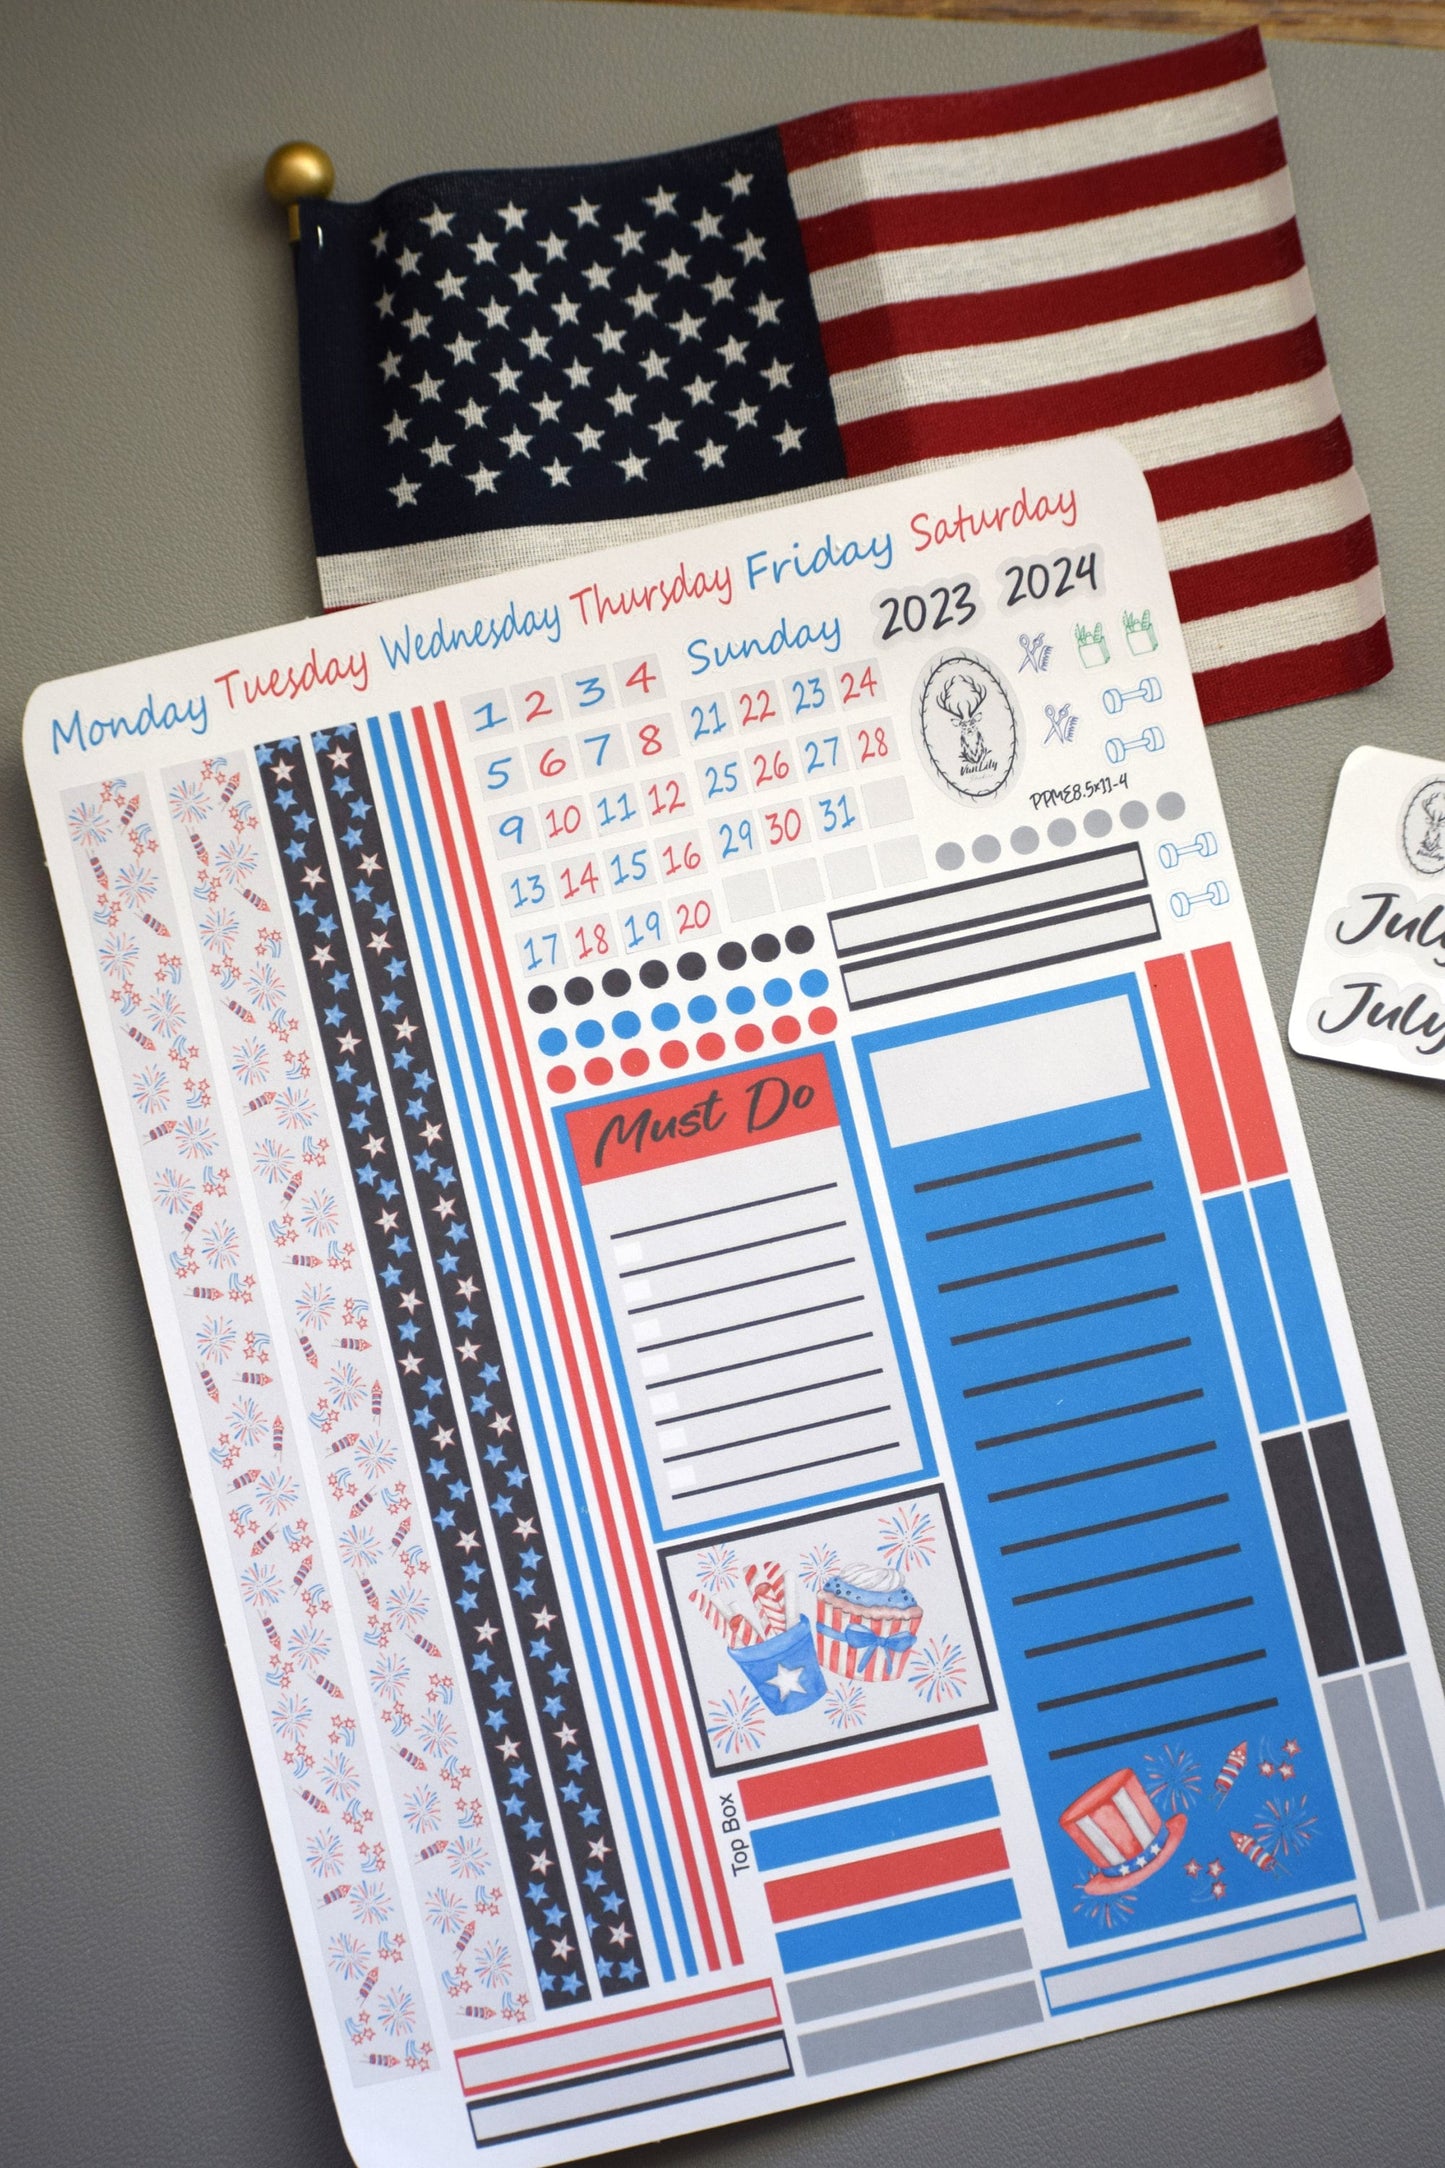 Monday Tuesday Wednesday Thursday Friday Saturday
Sunday 2023 2024
1 2 3 4
5 6 7 8
9 10 11 12
13 14 15 16
17 18 19 20
21 22 23 24
25 26 27 28
29 30 31
VanLily
PPME8.5x11-4
Must Do
Top Box
July
July